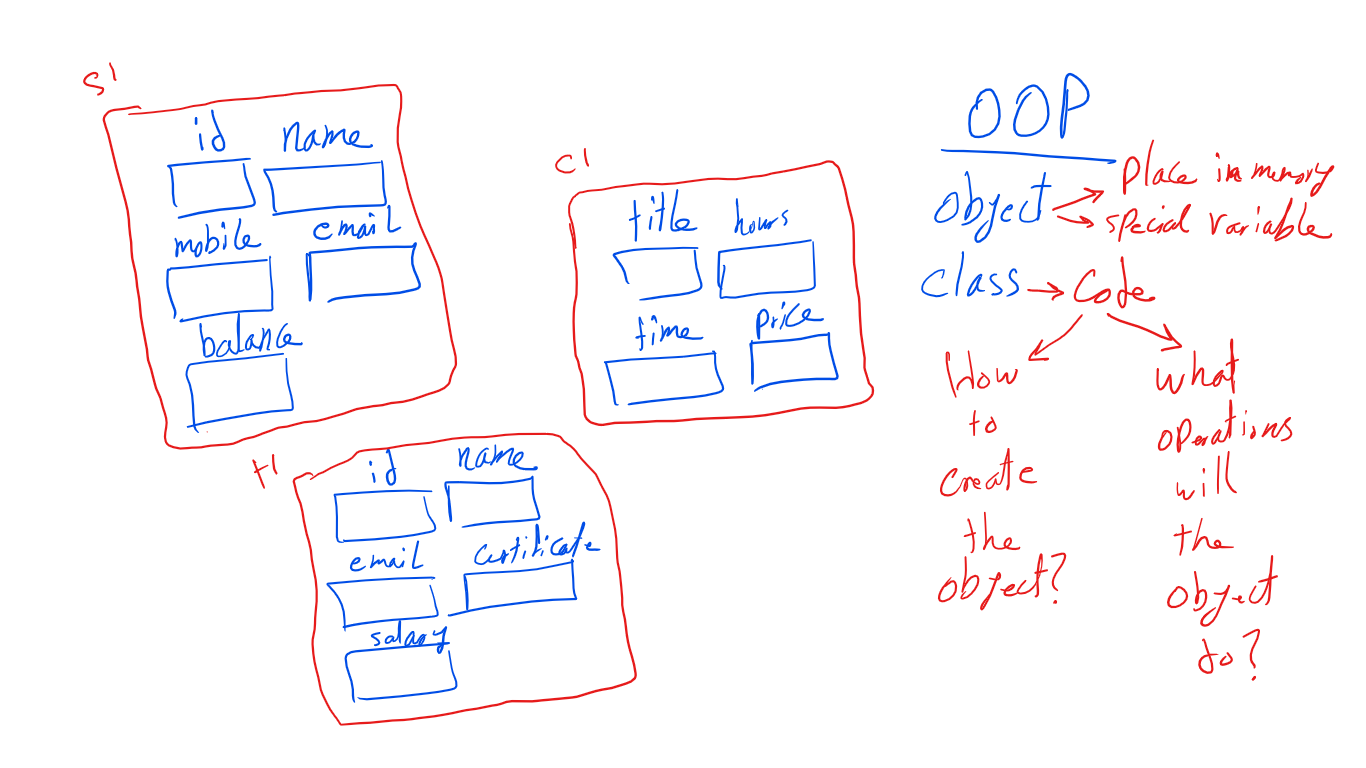 s1
id name
mobile email
balance
c1
title hours
time price
t1
id name
email certificate
salary
OOP
object → place in memory
→ special variable
class → code
How to create the object?
what operations will the object do?